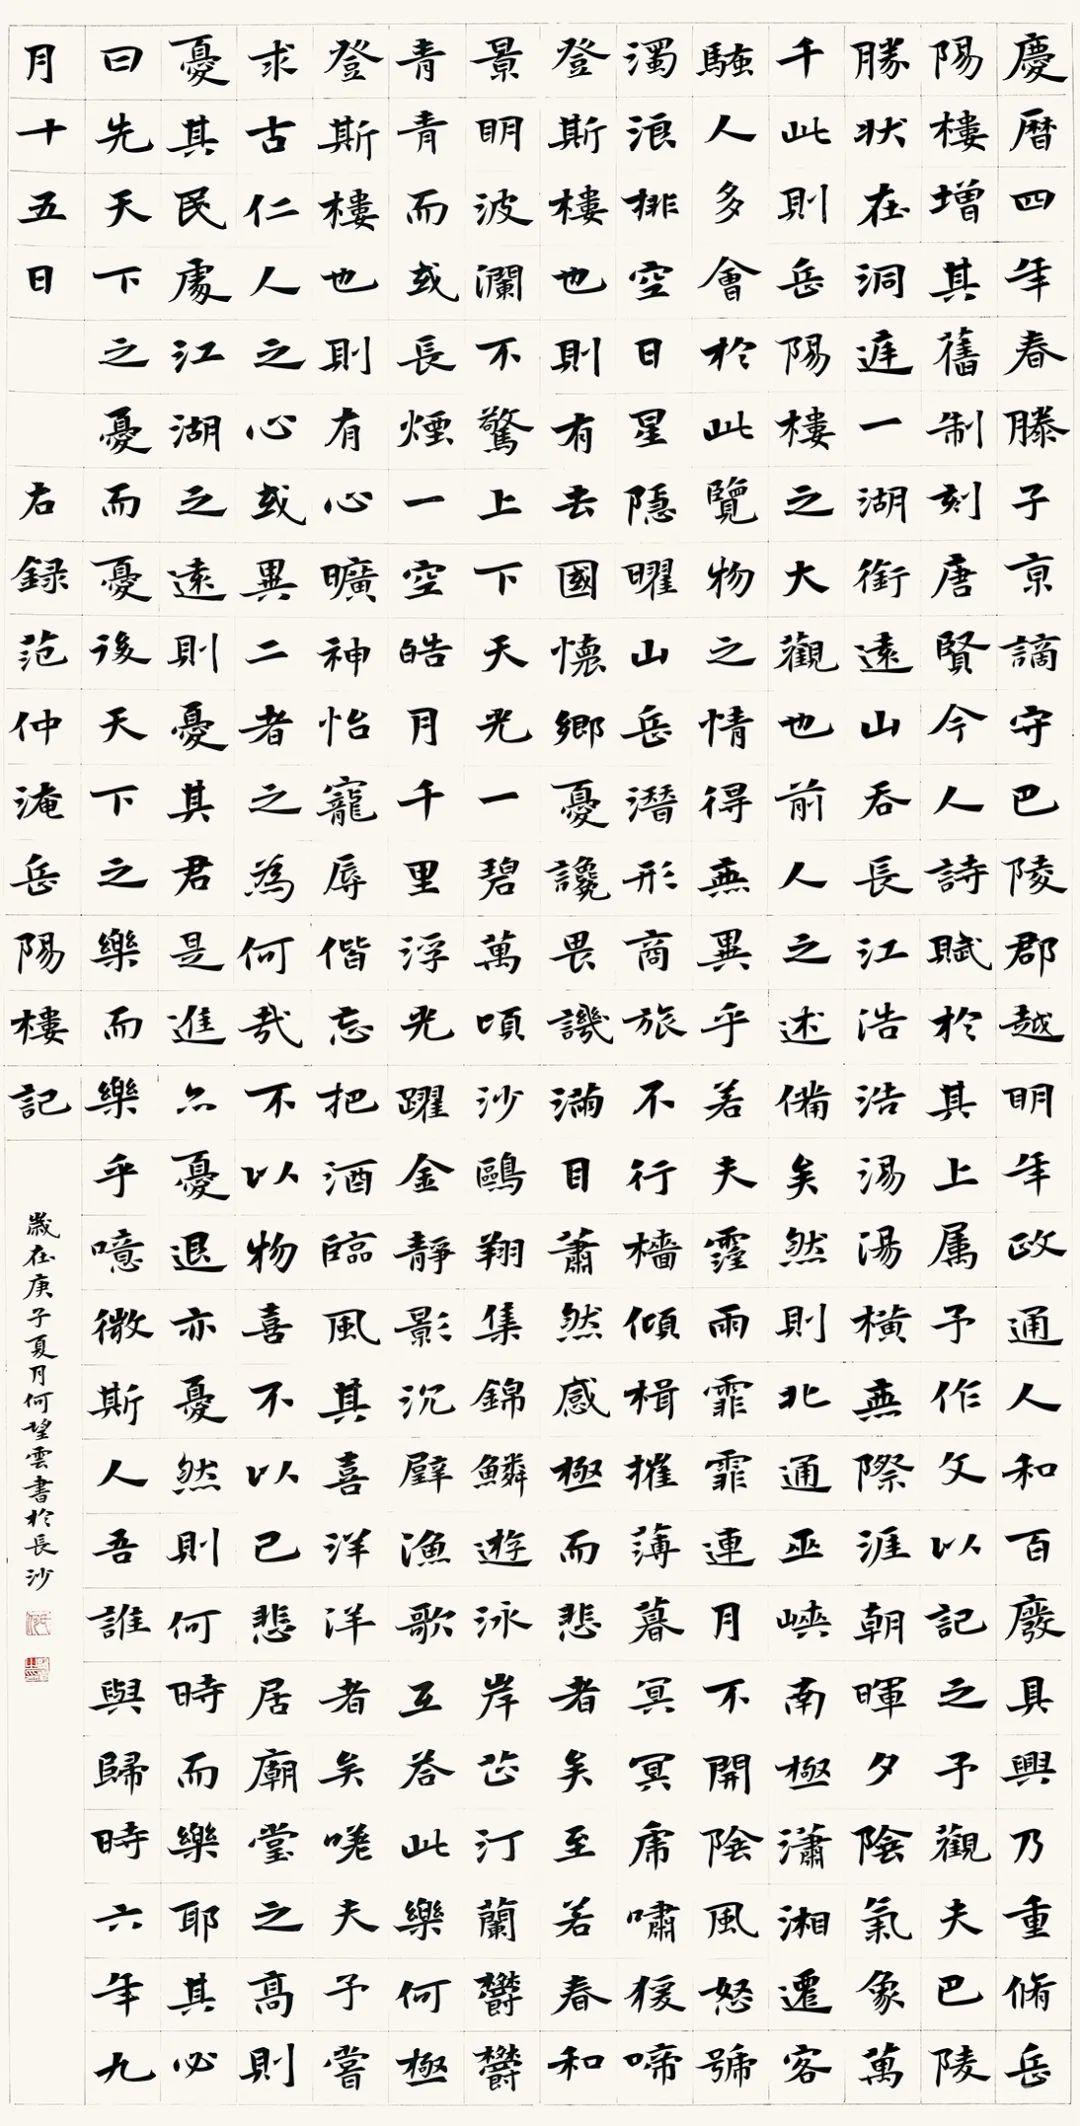 慶曆四年春滕子京謫守巴陵郡越明年政通人和百廢具興乃重脩岳
陽樓增其舊制刻唐賢今人詩賦於其上属予作文以記之予觀夫巴陵
勝狀在洞庭一湖銜遠山吞長江浩浩湯湯橫無際涯朝暉夕陰氣象萬
千此則岳陽樓之大觀也前人之述備矣然則北通巫峽南極瀟湘遷客
騷人多會於此覽物之情得無異乎若夫霪雨霏霏連月不開陰風怒號
濁浪排空日星隱曜山岳潛形商旅不行檣傾楫摧薄暮冥冥虎嘯猨啼
登斯樓也則有去國懷鄉憂讒畏譏滿目蕭然感極而悲者矣至若春和
景明波瀾不驚上下天光一碧萬頃沙鷗翔集錦鱗遊泳岸芷汀蘭欝欝
青青而或長煙一空皓月千里浮光躍金靜影沉璧漁歌互答此樂何極
登斯樓也則有心曠神怡寵辱偕忘把酒臨風其喜洋洋者矣嗟夫予嘗
求古仁人之心或異二者之為何哉不以物喜不以己悲居廟堂之高則
憂其民處江湖之遠則憂其君是進亦憂退亦憂然則何時而樂耶其必
曰先天下之憂而憂後天下之樂而樂乎噫微斯人吾誰與歸時六年九
月十五日 右録范仲淹岳陽樓記
歲在庚子夏月何望雲書於長沙